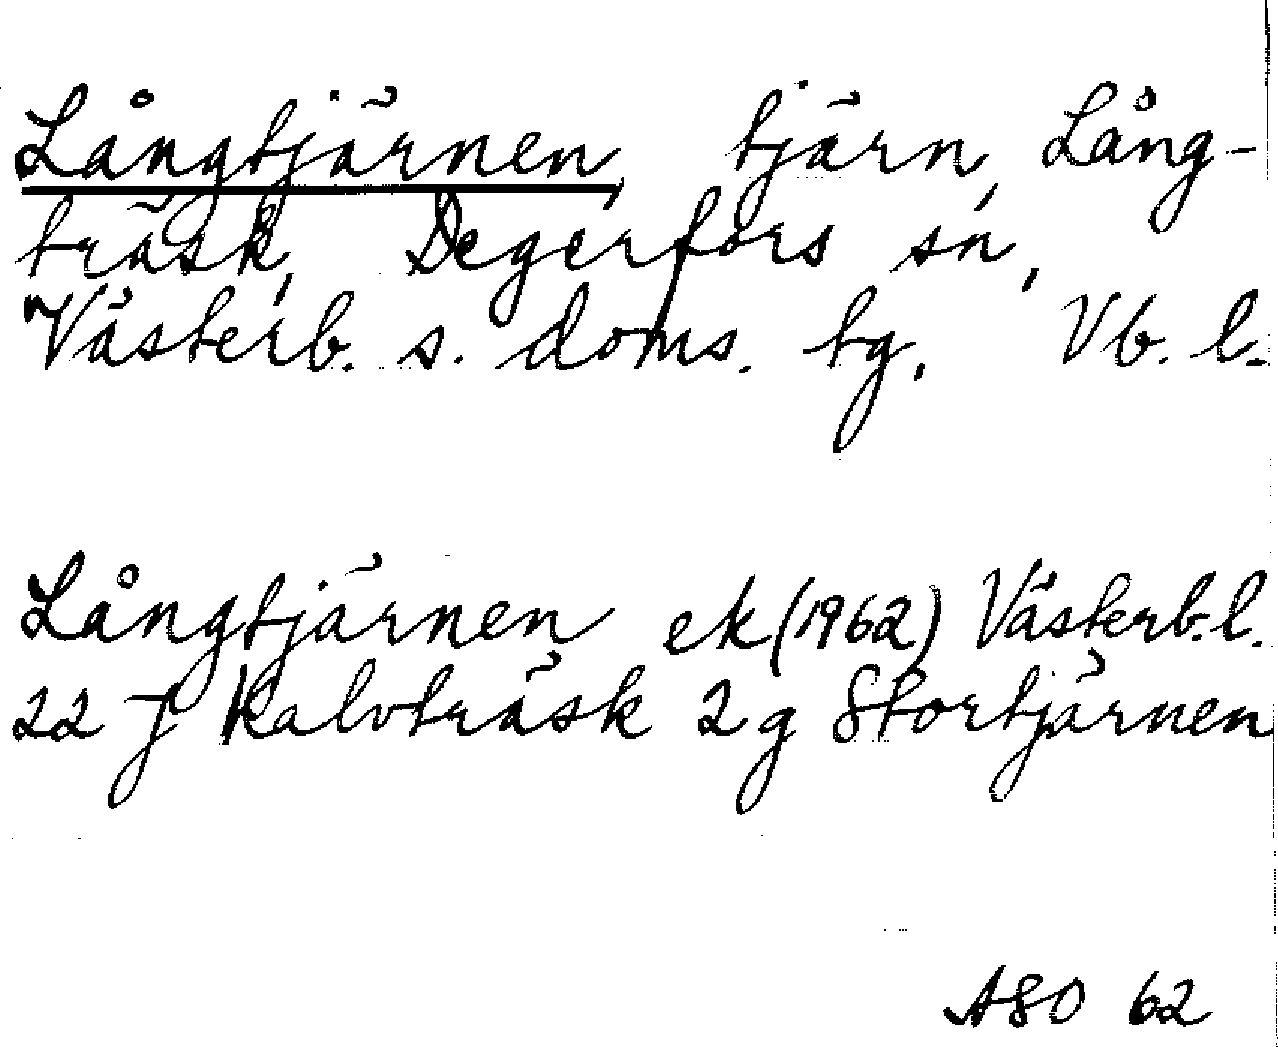 Långtjärnen, tjärn, Lång-
träsk, Degerfors sn,
Västerb. s. doms. tg, Vb. l.
Långtjärnen ek (1962) Västerb. l.
22 J Kalvträsk 2 g Stortjärnen
ASO 62